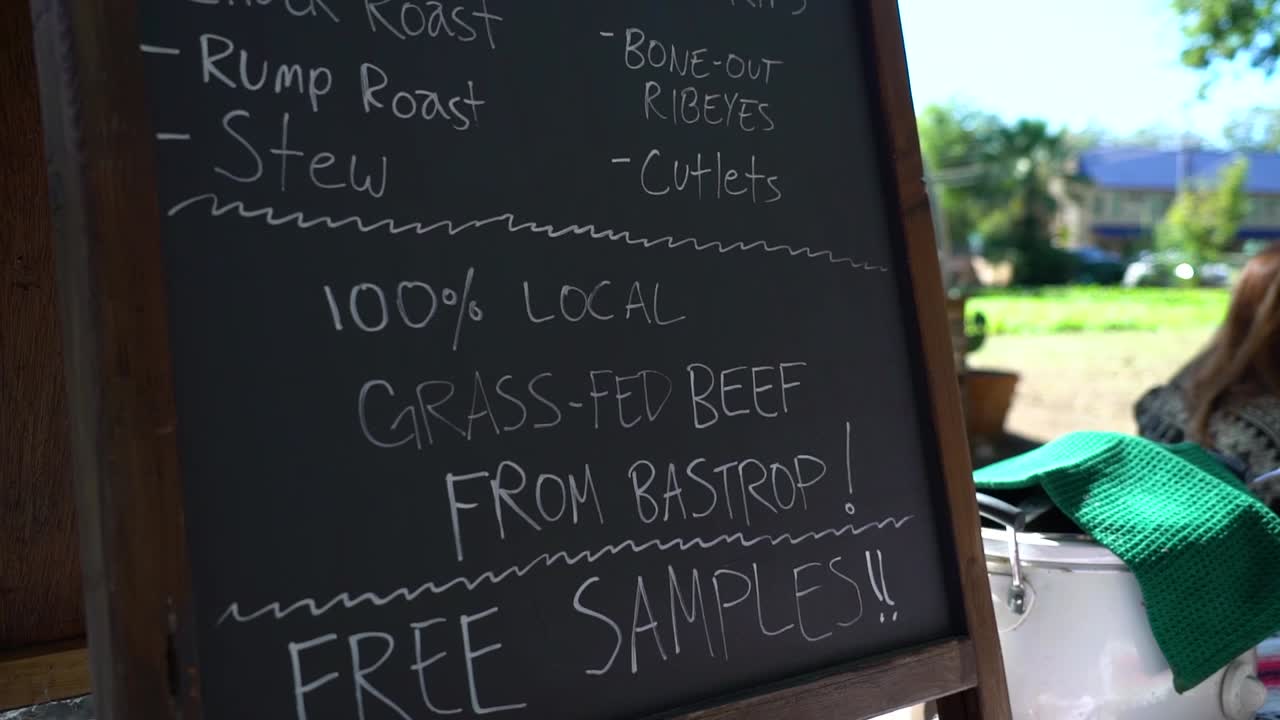 Roast
- Rump Roast
- Stew
- BONE-OUT
RIBEYES
- Cutlets
100% LOCAL
GRASS-FED BEEF
FROM BASTROP!
FREE SAMPLES!!